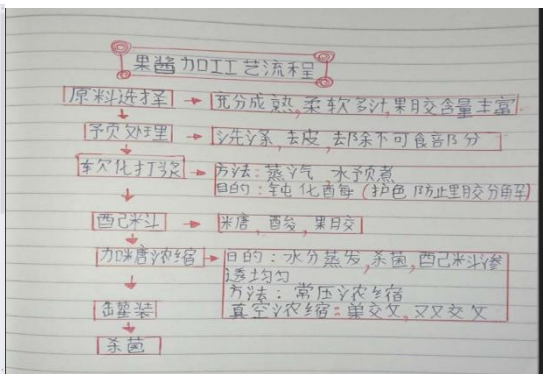 果酱加工工艺流程
原料选择 → 充分成熟,柔软多汁,果胶含量丰富
预处理 → 洗涤,去皮,去除不可食部分
软化打浆 → 方法:蒸汽 水预煮
目的:钝化酶(护色 防止果胶分解)
配料 → 糖,酸,果胶
加糖浓缩 → 目的:水分蒸发,杀菌,配料渗
透均匀
方法:常压浓缩
真空浓缩:单效,双效
罐装
杀菌